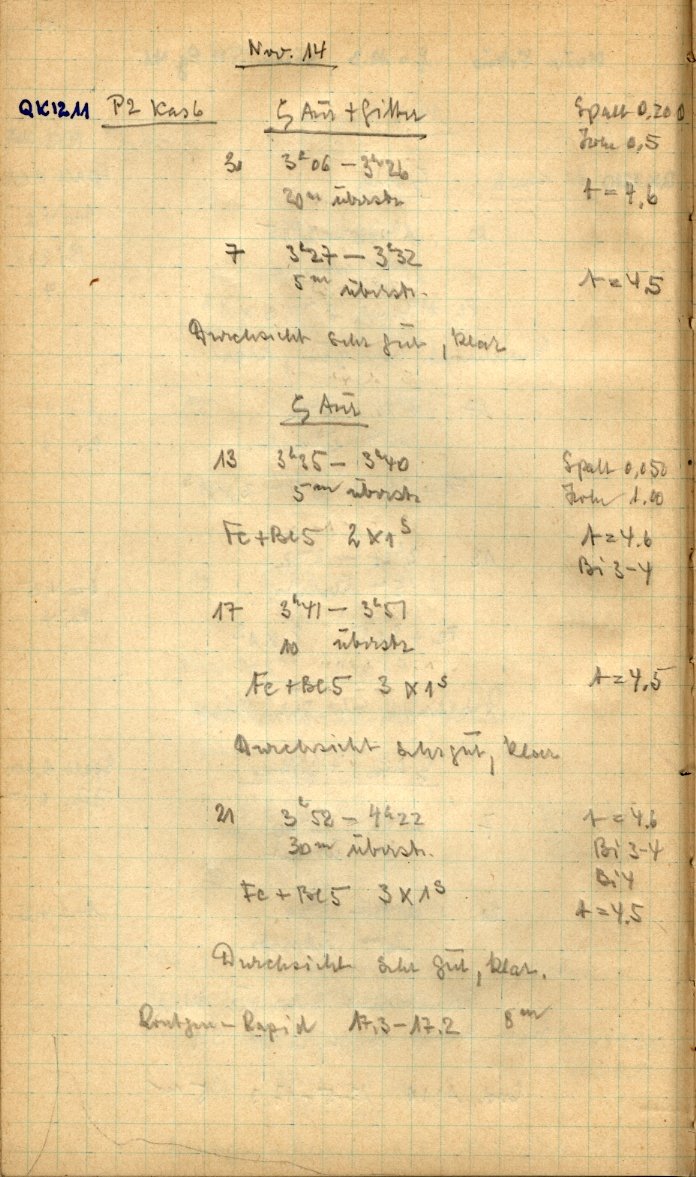 Nov. 14
QK1211 P2 Kas6 ζ Aur + Gitter Spalt 0,200
0,5
3h06 – 3h26
20m überstr. t = 4,6
7 3h27 – 3h32
5m überstr. t = 4,5
Durchsicht sehr gut, klar
ζ Aur
13 3h35 – 3h40 Spalt 0,050
5m überstr. 1.00
Fe + Be 5 2 x 1s t = 4.6
Bi 3-4
17 3h41 – 3h51
10 überstr.
Fe + Be 5 3 x 1s t = 4.5
Durchsicht sehr gut, klar
21 3h58 – 4h22 t = 4.6
30m überstr. Bi 3-4
Bi 4
Fe + Be 5 3 x 1s t = 4.5
Durchsicht sehr gut, klar.
Röntgen-Rapid 17.3 – 17.2 8m